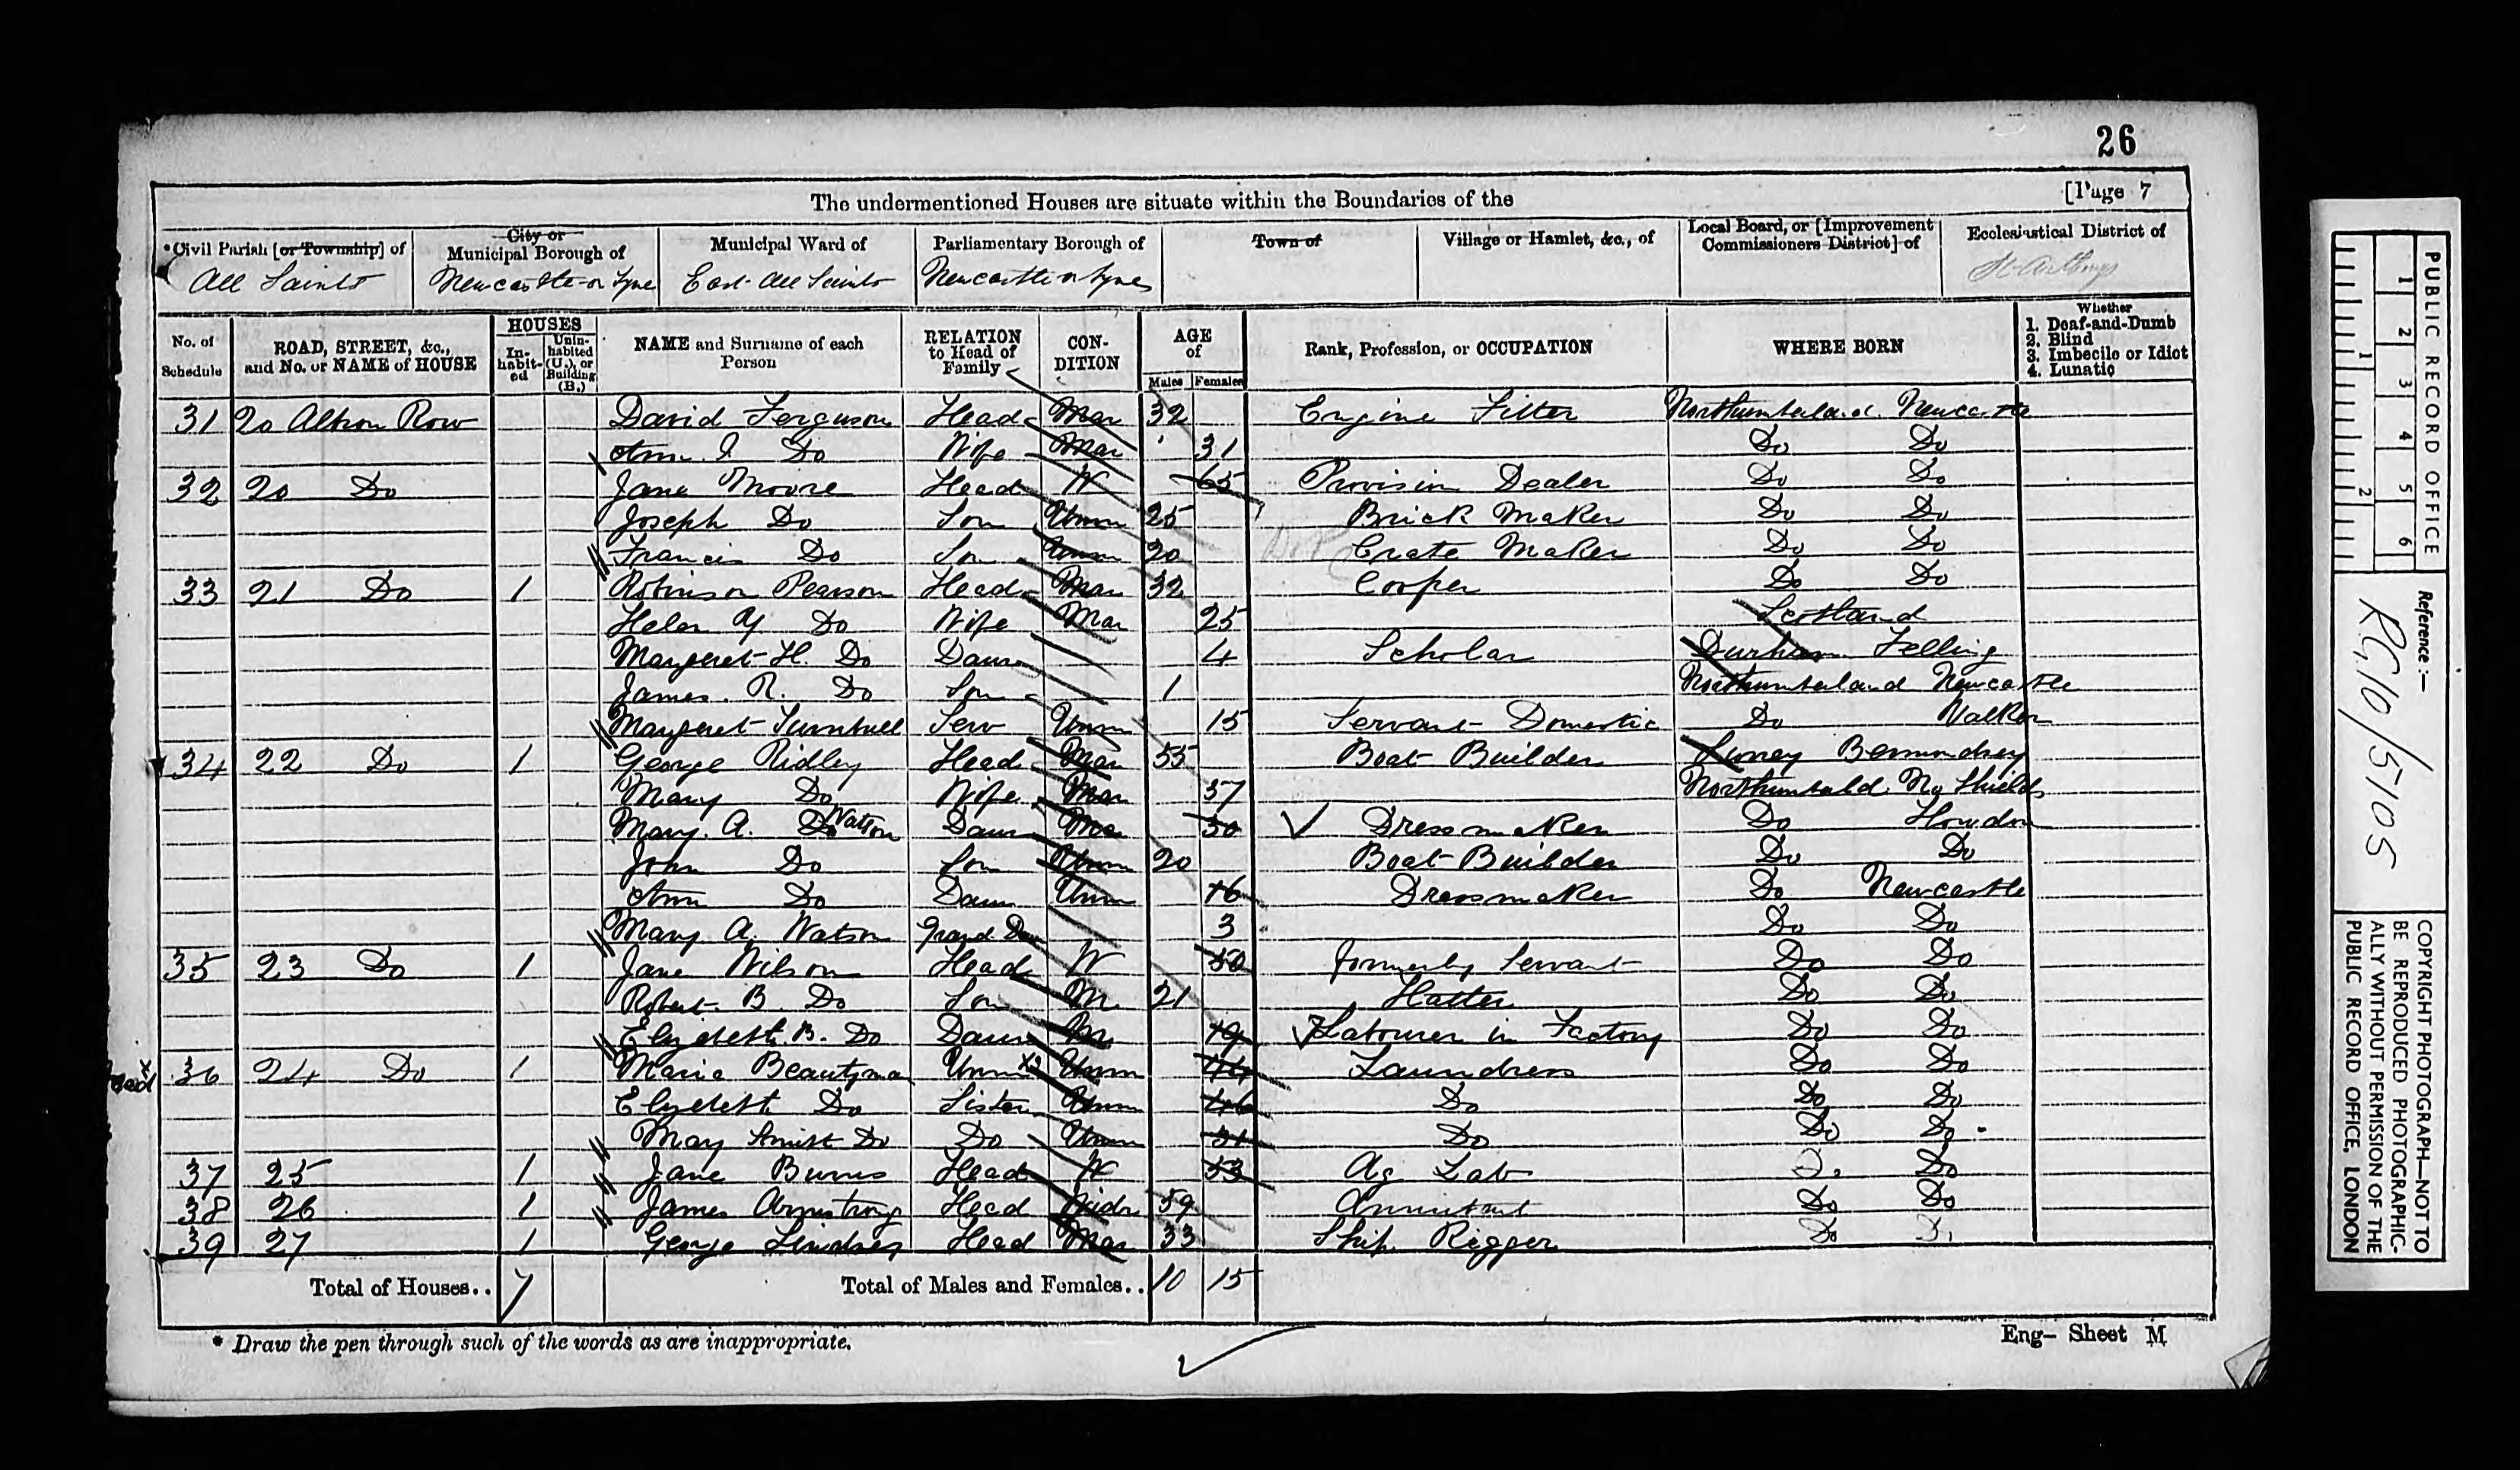 26
The undermentioned Houses are situate within the Boundaries of the [Page 7
*Civil Parish [or Township] of City or Municipal Borough of Municipal Ward of Parliamentary Borough of Town of Village or Hamlet, &c., of Local Board, or [Improvement Commissioners District] of Ecclesiastical District of
All Saints Newcastle on Tyne East All Saints Newcastle on Tyne St Anthonys
No. of Schedule ROAD, STREET, &c., and No. or NAME of HOUSE HOUSES Inhabited Uninhabited (U.), or Building (B.) NAME and Surname of each Person RELATION to Head of Family CONDITION AGE of Males Females Rank, Profession, or OCCUPATION WHERE BORN Whether 1. Deaf-and-Dumb 2. Blind 3. Imbecile or Idiot 4. Lunatic
31 20 Albion Row David Ferguson Head Mar 32 Engine Fitter Northumberland Newcastle
Ann I Do Wife Mar 31 Do Do
32 20 Do Jane Moore Head W 65 Provision Dealer Do Do
Joseph Do Son Unm 25 Brick Maker Do Do
Francis Do Son Unm 20 Crate Maker Do Do
33 21 Do 1 Robinson Pearson Head Mar 32 Cooper Do Do
Helen Y Do Wife Mar 25 Scotland
Margeret H. Do Daur 4 Scholar Durham Felling
James. R. Do Son 1 Northumberland Newcastle
Margeret Turnbull Serv Unm 15 Servant Domestic Do Walker
34 22 Do 1 George Ridley Head Mar 55 Boat Builder Surrey Bermondsey
Mary Do Wife Mar 57 Northumbeld. No Shields
Mary. A. Do Watson Daur Mar 30 Dressmaker Do Howdon
John Do Son Unm 20 Boat Builder Do Do
Ann Do Daur Unm 16 Dressmaker Do Newcastle
Mary A. Watson Grand Daur 3 Do Do
35 23 Do 1 Jane Wilson Head W 50 formerly Servant Do Do
Robert B. Do Son 21 Hatter Do Do
Elizabeth B. Do Daur 19 Labourer in Factory Do Do
Head x 36 24 Do 1 Maria Beautyman Unm x Unm 44 Laundress Do Do
Elizabeth Do Sister Unm 46 Do Do Do
May Do Do Unm 31 Do Do Do
37 25 1 Jane Burns Head W 53 Ag Lab Do Do
38 26 1 James Armstrong Head Widr 59 Annuitant Do Do
39 27 1 George Lindsey Head Mar 33 Ship Rigger Do Do
Total of Houses.. 7 Total of Males and Females.. 10 15
* Draw the pen through such of the words as are inappropriate.
Eng- Sheet M
PUBLIC RECORD OFFICE
1 2 3 4 5 6
1 2
Reference:-
RG.10/5105
COPYRIGHT PHOTOGRAPH—NOT TO
BE REPRODUCED PHOTOGRAPHIC-
ALLY WITHOUT PERMISSION OF THE
PUBLIC RECORD OFFICE, LONDON